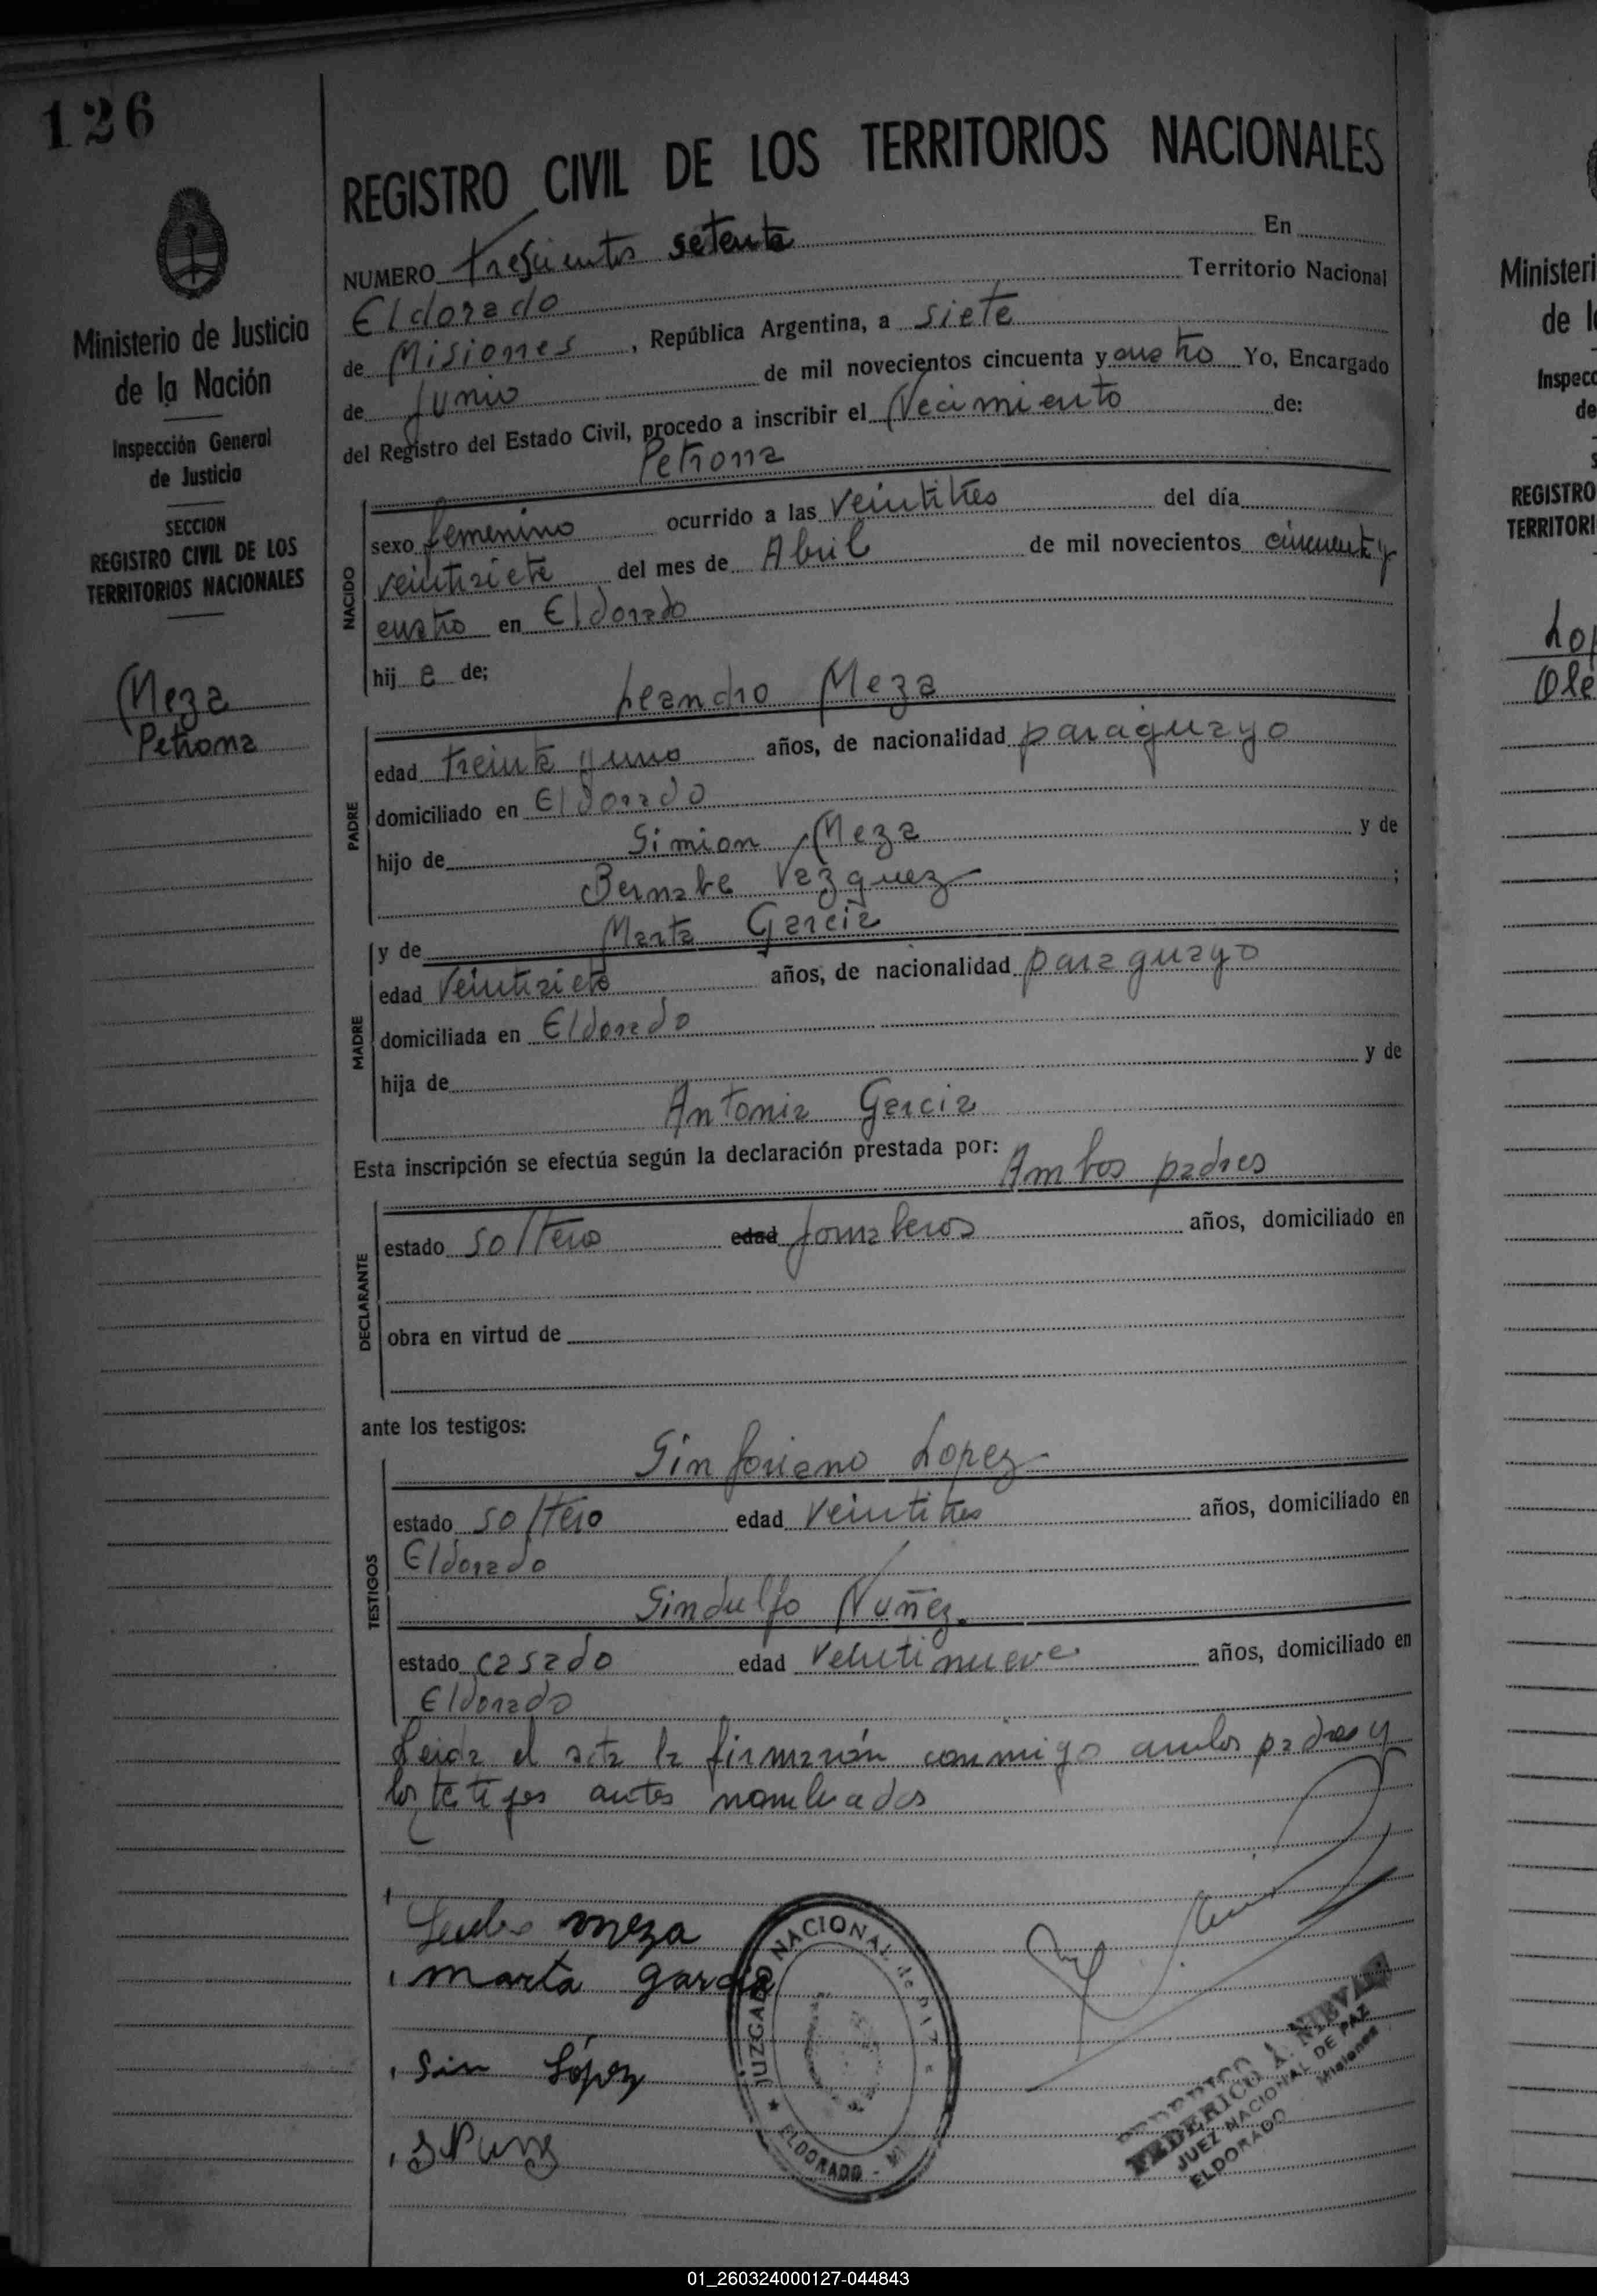 126
Ministerio de Justicia
de la Nación
Inspección General
de Justicia
SECCION
REGISTRO CIVIL DE LOS
TERRITORIOS NACIONALES
Meza
Petrona
REGISTRO CIVIL DE LOS TERRITORIOS NACIONALES
NUMERO trescientos setenta En
Eldorado Territorio Nacional
de Misiones, República Argentina, a siete
de Junio de mil novecientos cincuenta y cuatro Yo, Encargado
del Registro del Estado Civil, procedo a inscribir el Nacimiento de:
Petrona
NACIDO
sexo femenino ocurrido a las veintitres del día
veintisiete del mes de Abril de mil novecientos cincuenta y
cuatro en Eldorado
hij a de;
Leandro Meza
PADRE
edad treinta y uno años, de nacionalidad paraguayo
domiciliado en Eldorado
hijo de Simion Meza y de
Bernabe Vazquez ;
MADRE
y de Marta Garcia
edad Veintisiete años, de nacionalidad paraguayo
domiciliada en Eldorado
hija de y de
Antonia Garcia
Esta inscripción se efectúa según la declaración prestada por:
Ambos padres
DECLARANTE
estado soltero edad jornaleros años, domiciliado en
obra en virtud de
ante los testigos:
Sinforiano Lopez
TESTIGOS
estado soltero edad Veintitres años, domiciliado en
Eldorado
Sindulfo Nuñez.
estado casado edad Veintinueve años, domiciliado en
Eldorado
Leida el acta la firmarón conmigo ambos padres y
los testigos antes nombrados
meza
marta garcia
Sin López
JUZGADO NACIONAL de
ELDORADO - MI
FEDERICO A. NIEVAS
JUEZ NACIONAL DE PAZ
ELDORADO Misiones
Ministeri
de l
Inspecc
de
REGISTRO
TERRITORI
Lop
Ole
01_260324000127-044843